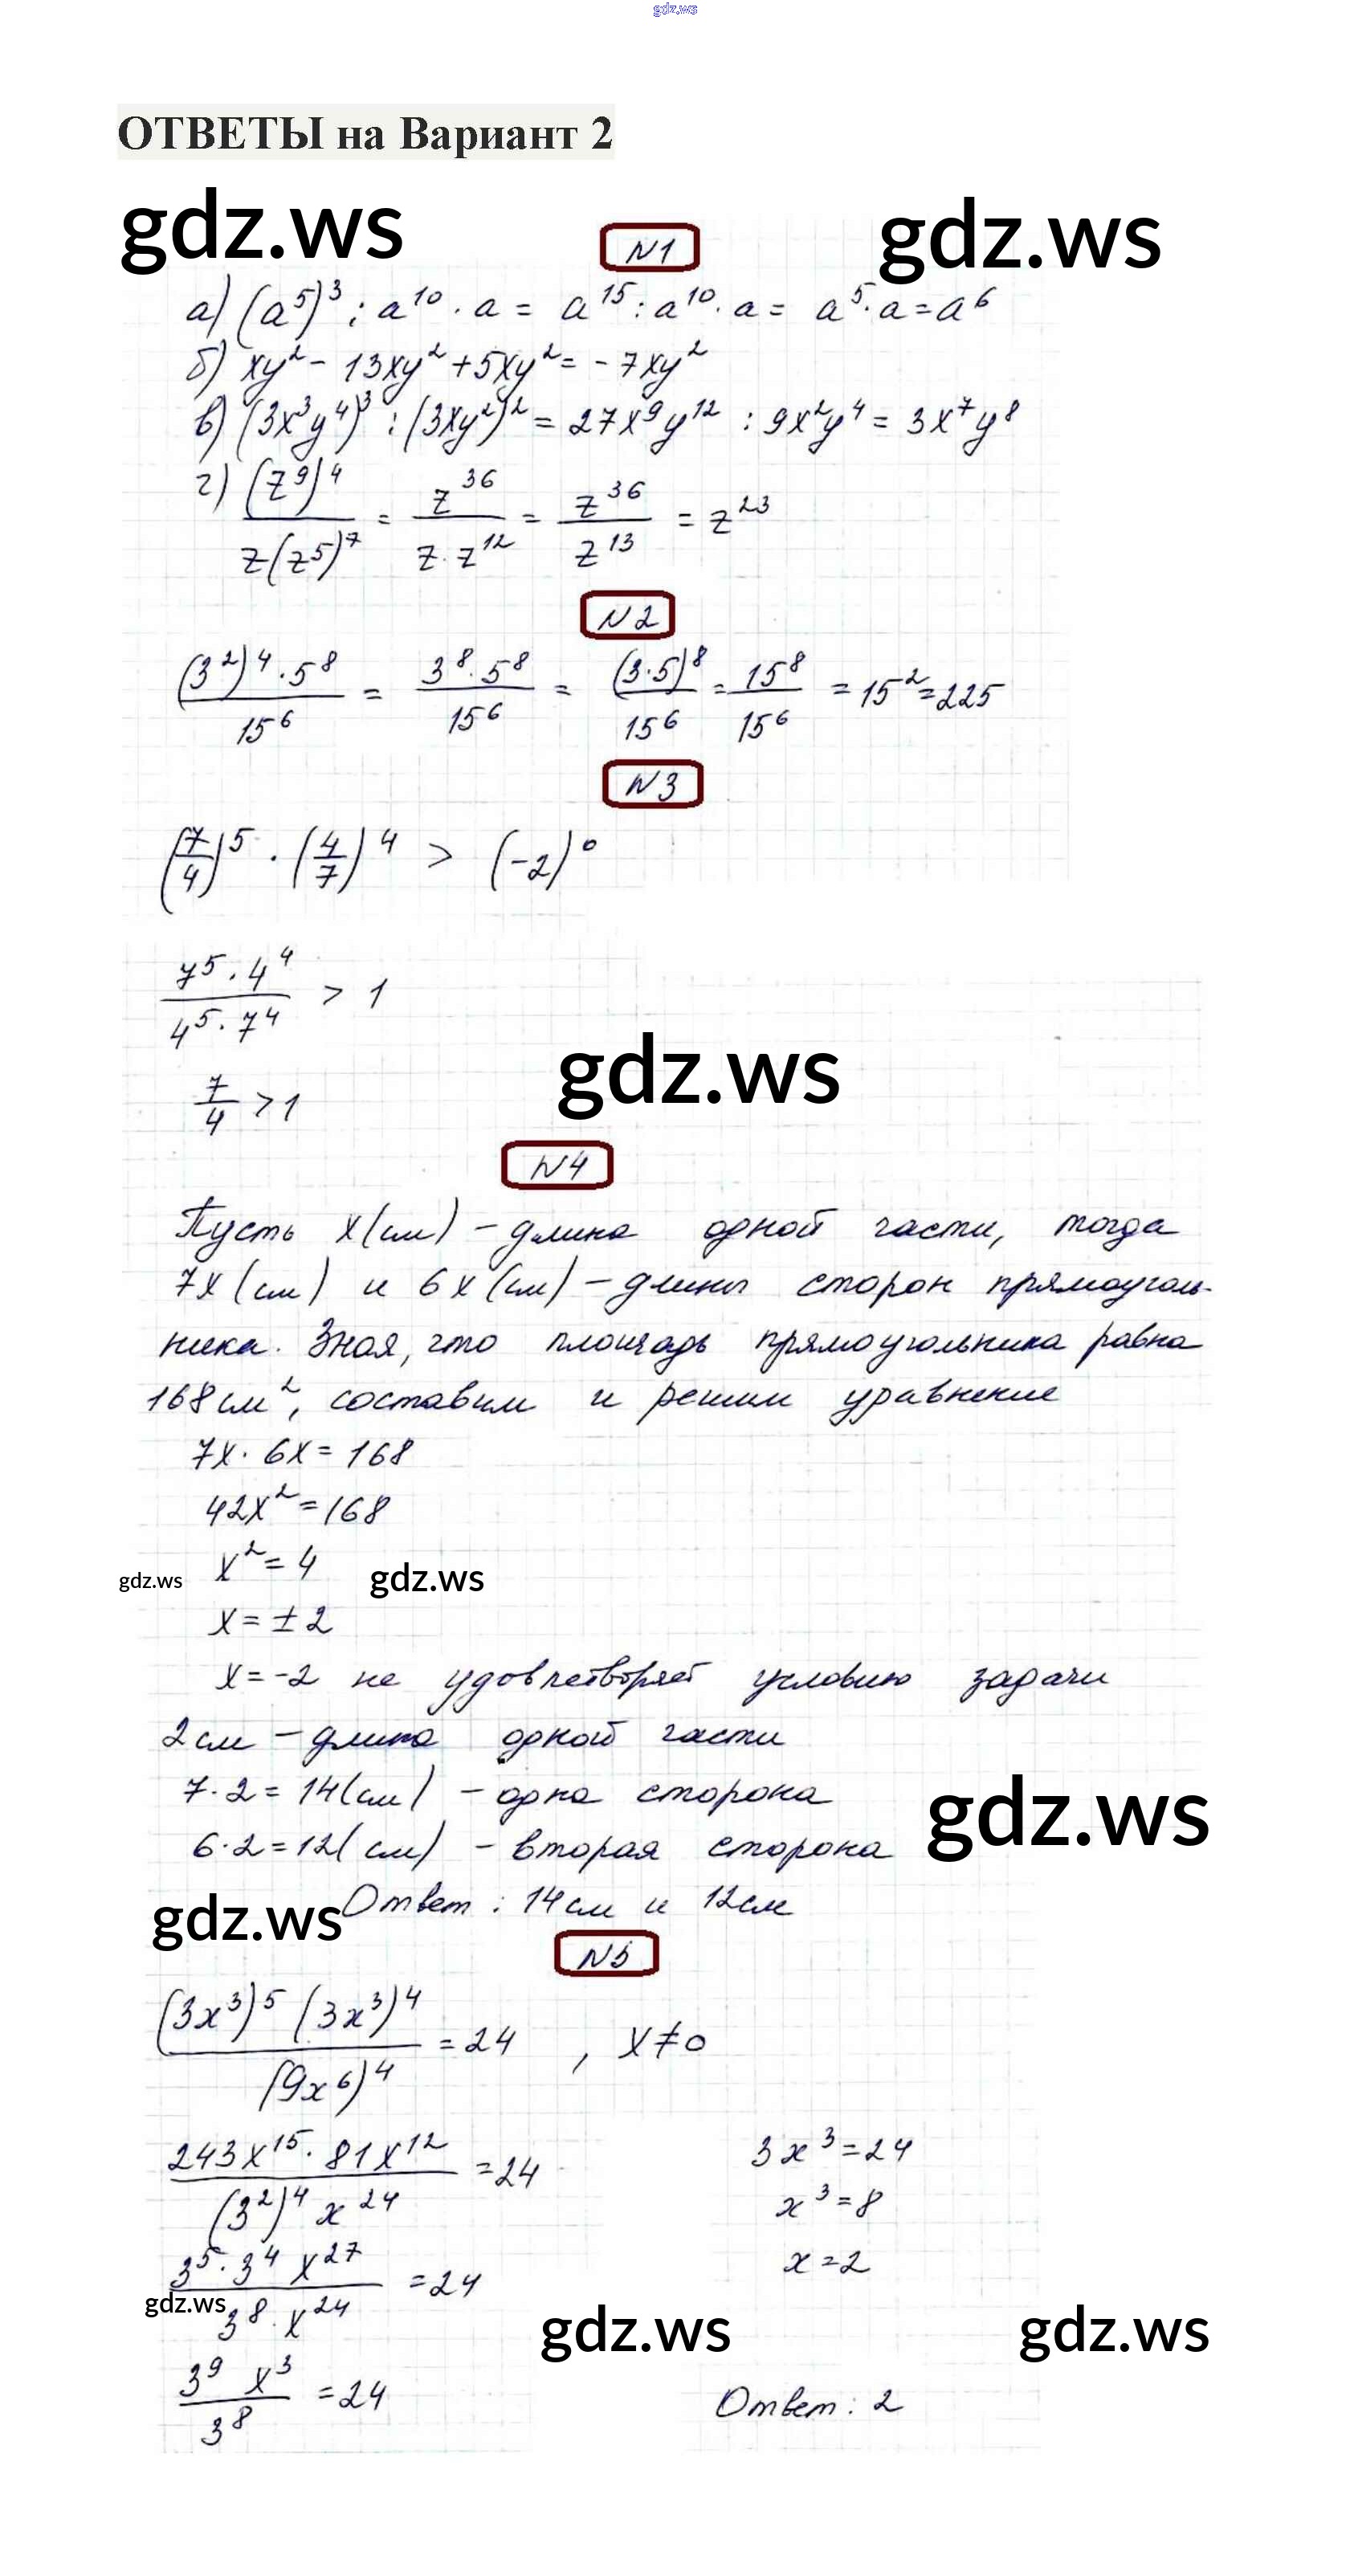 gdz.ws
ОТВЕТЫ на Вариант 2
gdz.ws gdz.ws
N1
а) (a⁵)³ : a¹⁰ · a = a¹⁵ : a¹⁰ · a = a⁵ · a = a⁶
б) xy² - 13xy² + 5xy² = -7xy²
в) (3x³y⁴)³ : (3xy²)² = 27x⁹y¹² : 9x²y⁴ = 3x⁷y⁸
г) (z⁹)⁴ / z(z⁵)⁷ = z³⁶ / z · z¹² = z³⁶ / z¹³ = z²³
N2
(3²)⁴ · 5⁸ / 15⁶ = 3⁸ · 5⁸ / 15⁶ = (3·5)⁸ / 15⁶ = 15⁸ / 15⁶ = 15² = 225
N3
(7/4)⁵ · (4/7)⁴ > (-2)⁰
7⁵ · 4⁴ / 4⁵ · 7⁴ > 1
gdz.ws
7/4 > 1
N4
Пусть x(см) – длина одной части, тогда
7x (см) и 6x (см) – длины сторон прямоуголь-
ника. Зная, что площадь прямоугольника равна
168 см², составим и решим уравнение
7x · 6x = 168
42x² = 168
x² = 4
gdz.ws gdz.ws
x = ± 2
x = -2 не удовлетворяет условию задачи
2 см – длина одной части
7 · 2 = 14 (см) – одна сторона
gdz.ws
6 · 2 = 12 (см) – вторая сторона
gdz.ws
Ответ : 14 см и 12 см
N5
(3x³)⁵ (3x³)⁴ / (9x⁶)⁴ = 24 , x ≠ 0
243x¹⁵ · 81x¹² / (3²)⁴ x²⁴ = 24
3⁵ · 3⁴ x²⁷ / 3⁸ · x²⁴ = 24
gdz.ws
3⁹ x³ / 3⁸ = 24
3x³ = 24
x³ = 8
x = 2
gdz.ws gdz.ws
Ответ : 2